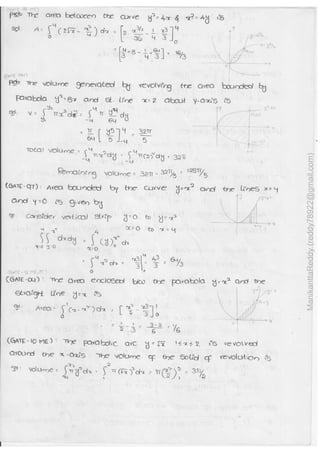 Pbl: The area between the curve y²=4x & x²=4y is
sol: A = ∫₀⁴ (2√x - x²/4) dx = [2 x^(3/2)/(3/2) - 1/4 x³/3]₀⁴
= [4/3 × 8 - 1/4 × 64/3] = 16/3
Pbl: The volume generated by revolving the area bounded by
parabola y²=8x and st. line x=2 about y-axis is
sol: V = ∫ πx² dy = ∫₋₄⁴ π y⁴/64 dy
= π/64 [y⁵/5]₋₄⁴ = 32π/5
Total volume = ∫₋₄⁴ πx² dy = ∫₋₄⁴ π(2)² dy = 32π
Remaining volume = 32π - 32π/5 = 128π/5
(GATE-97): Area bounded by the curve y=x² and the lines x=4
and y=0 is given by
sol: consider vertical strip y=0 to y=x²
x=0 to x=4
∫∫ dxdy = ∫₀⁴ (y)₀^x² dx
= ∫₀⁴ x² dx = x³/3]₀⁴ = 4³/3 = 64/3
: The area enclosed b/w the parabola y=x² and the
straight line y=x is
sol: Area = ∫₀¹ (x-x²) dx = [x²/2 - x³/3]₀¹
= 1/2 - 1/3 = 3-2/6 = 1/6
(GATE-10 ME): The parabolic arc y=√x 1≤x≤2 is revolved
around the x-axis. The volume of the solid of revolution is
sol: volume = ∫ πy² dx = ∫₁² π(√x)² dx = π(x²/2)₁² = 3π/2
ManikantaReddy (reddy78922@gmail.com)